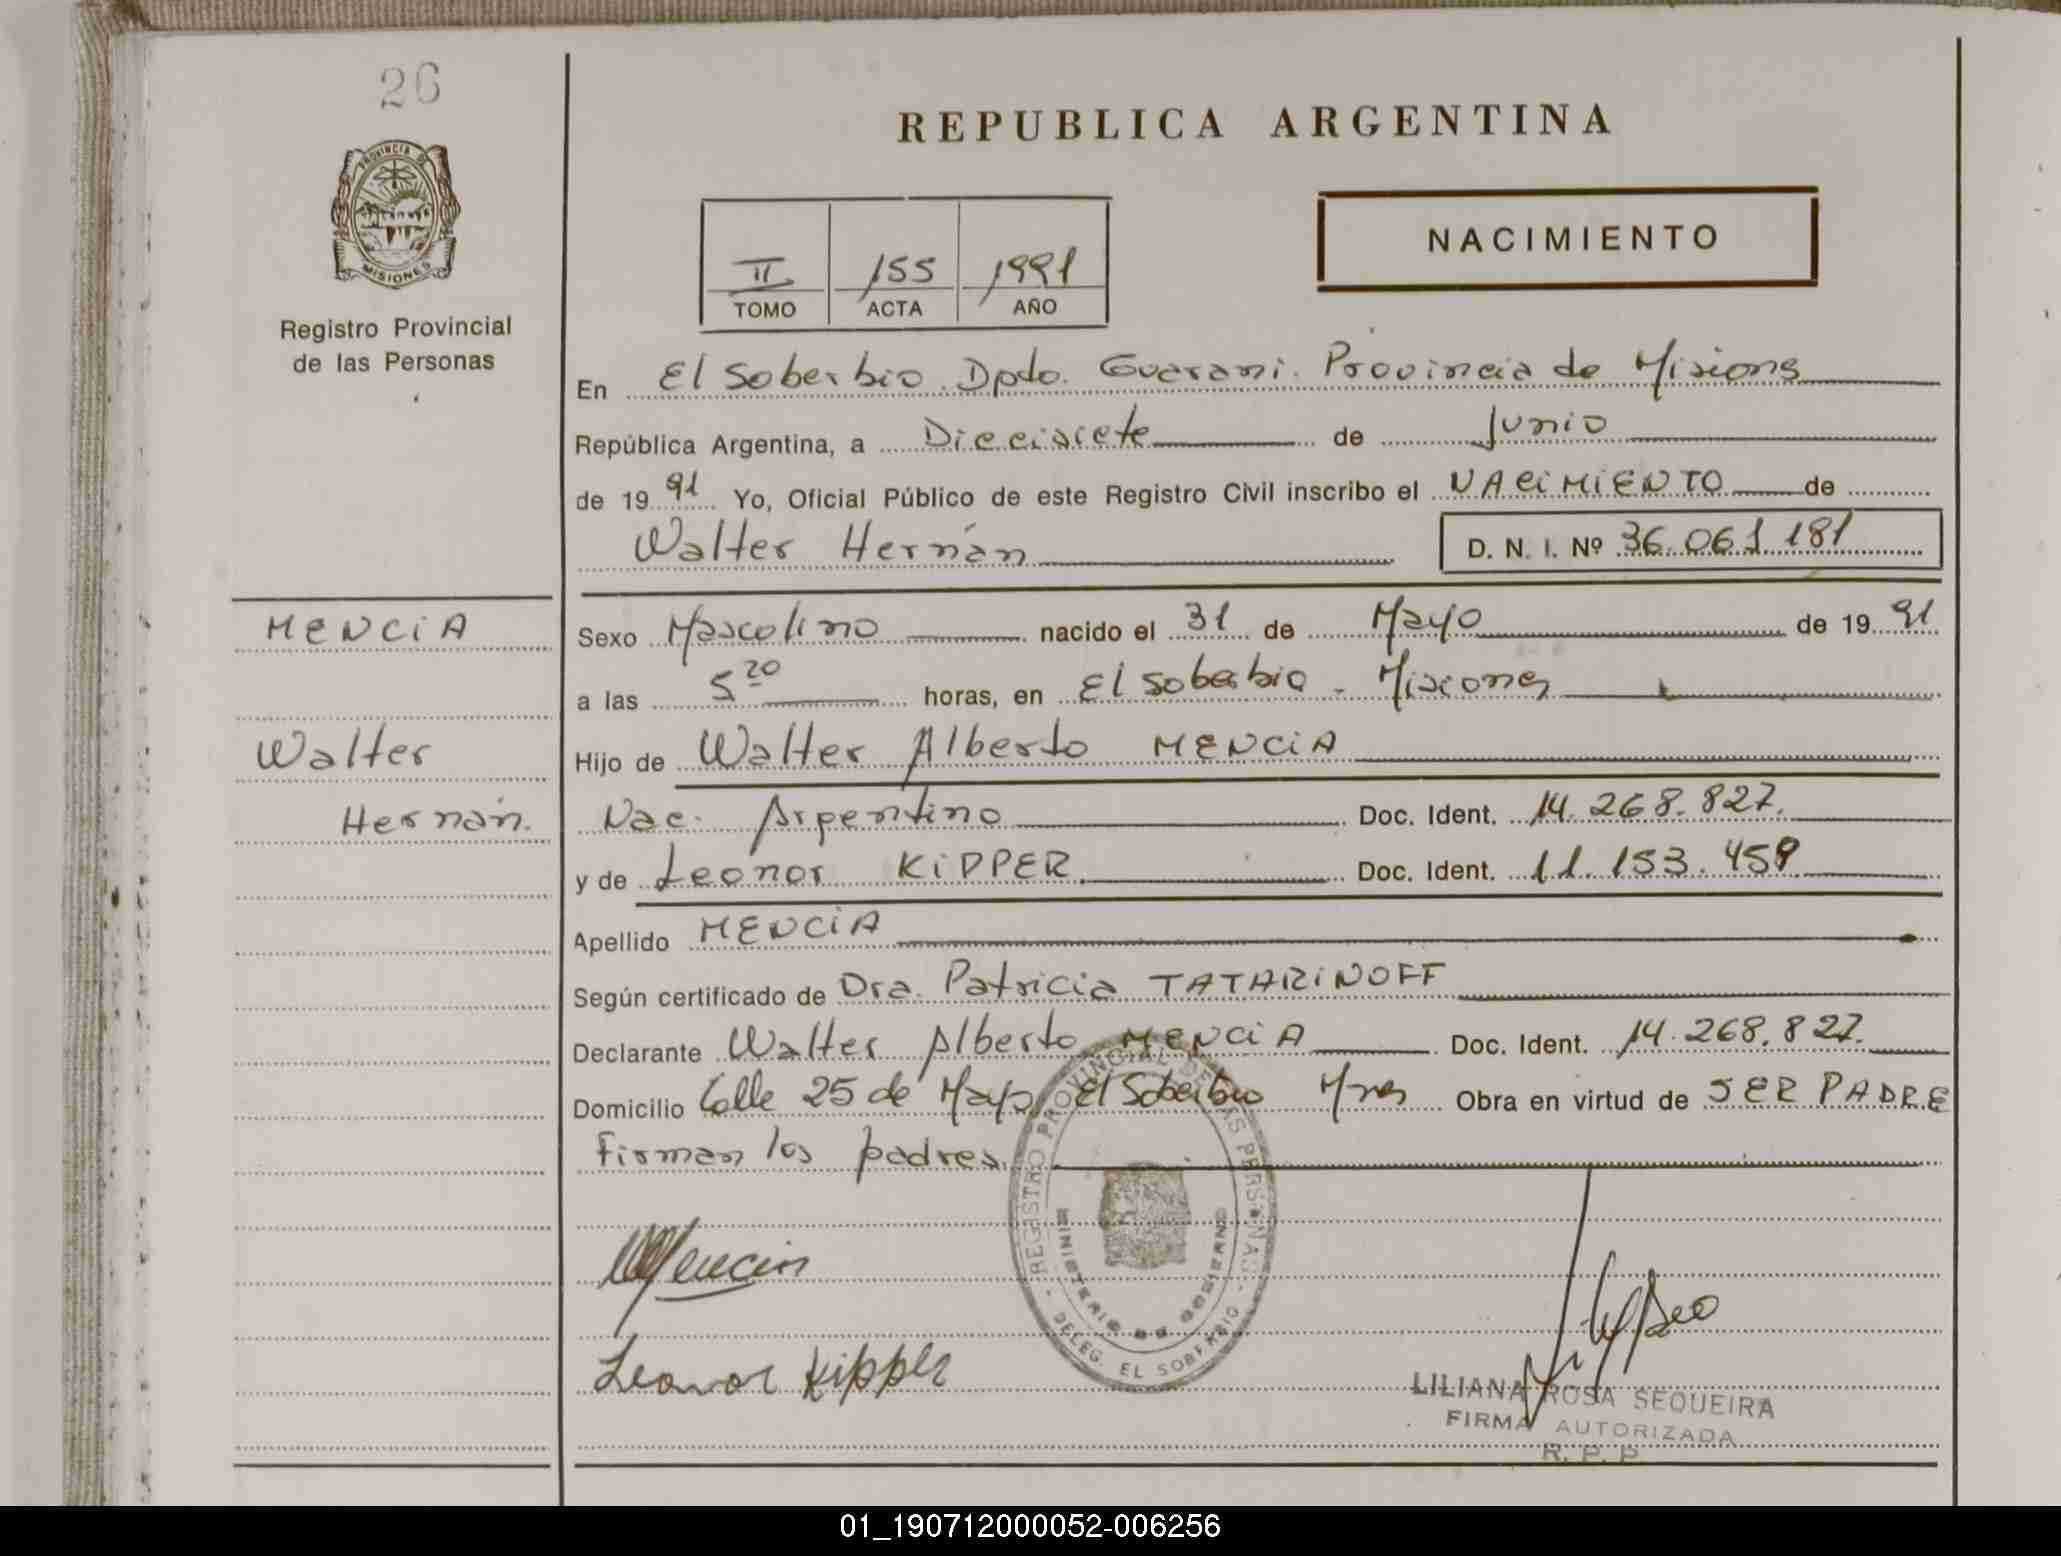 26
PROVINCIA DE
MISIONES
Registro Provincial
de las Personas
MENCiA
Walter
Hernán.
REPUBLICA ARGENTINA
NACIMIENTO
II 155 1991
TOMO ACTA AÑO
En El Soberbio. Dpto. Guarani. Provincia de Misiones
República Argentina, a Diecisiete de Junio
de 1991 Yo, Oficial Público de este Registro Civil inscribo el NACiMiENTO de
Walter Hernán D. N. I. Nº 36.061.181
Sexo Masculino nacido el 31 de Mayo de 1991
a las 5 20 horas, en El Soberbio - Misiones
Hijo de Walter Alberto MENCiA
Nac. Argentino Doc. Ident. 14.268.827.
y de Leonor KiPPER Doc. Ident. 11.153.459
Apellido MENCiA
Según certificado de Dra. Patricia TATARiNOFF
Declarante Walter Alberto MENCiA Doc. Ident. 14.268.827.
Domicilio Calle 25 de Mayo El Soberbio Mnes Obra en virtud de SER PADRE
Firman los padres.
REGISTRO PROVINCIAL DE LAS PERSONAS
MINISTERIO DE GOBIERNO
DELEG. EL SOBERBIO
Mencia
Leonor Kipper
LILIANA ROSA SEQUEIRA
FIRMA AUTORIZADA
R. P. P.
01_190712000052-006256